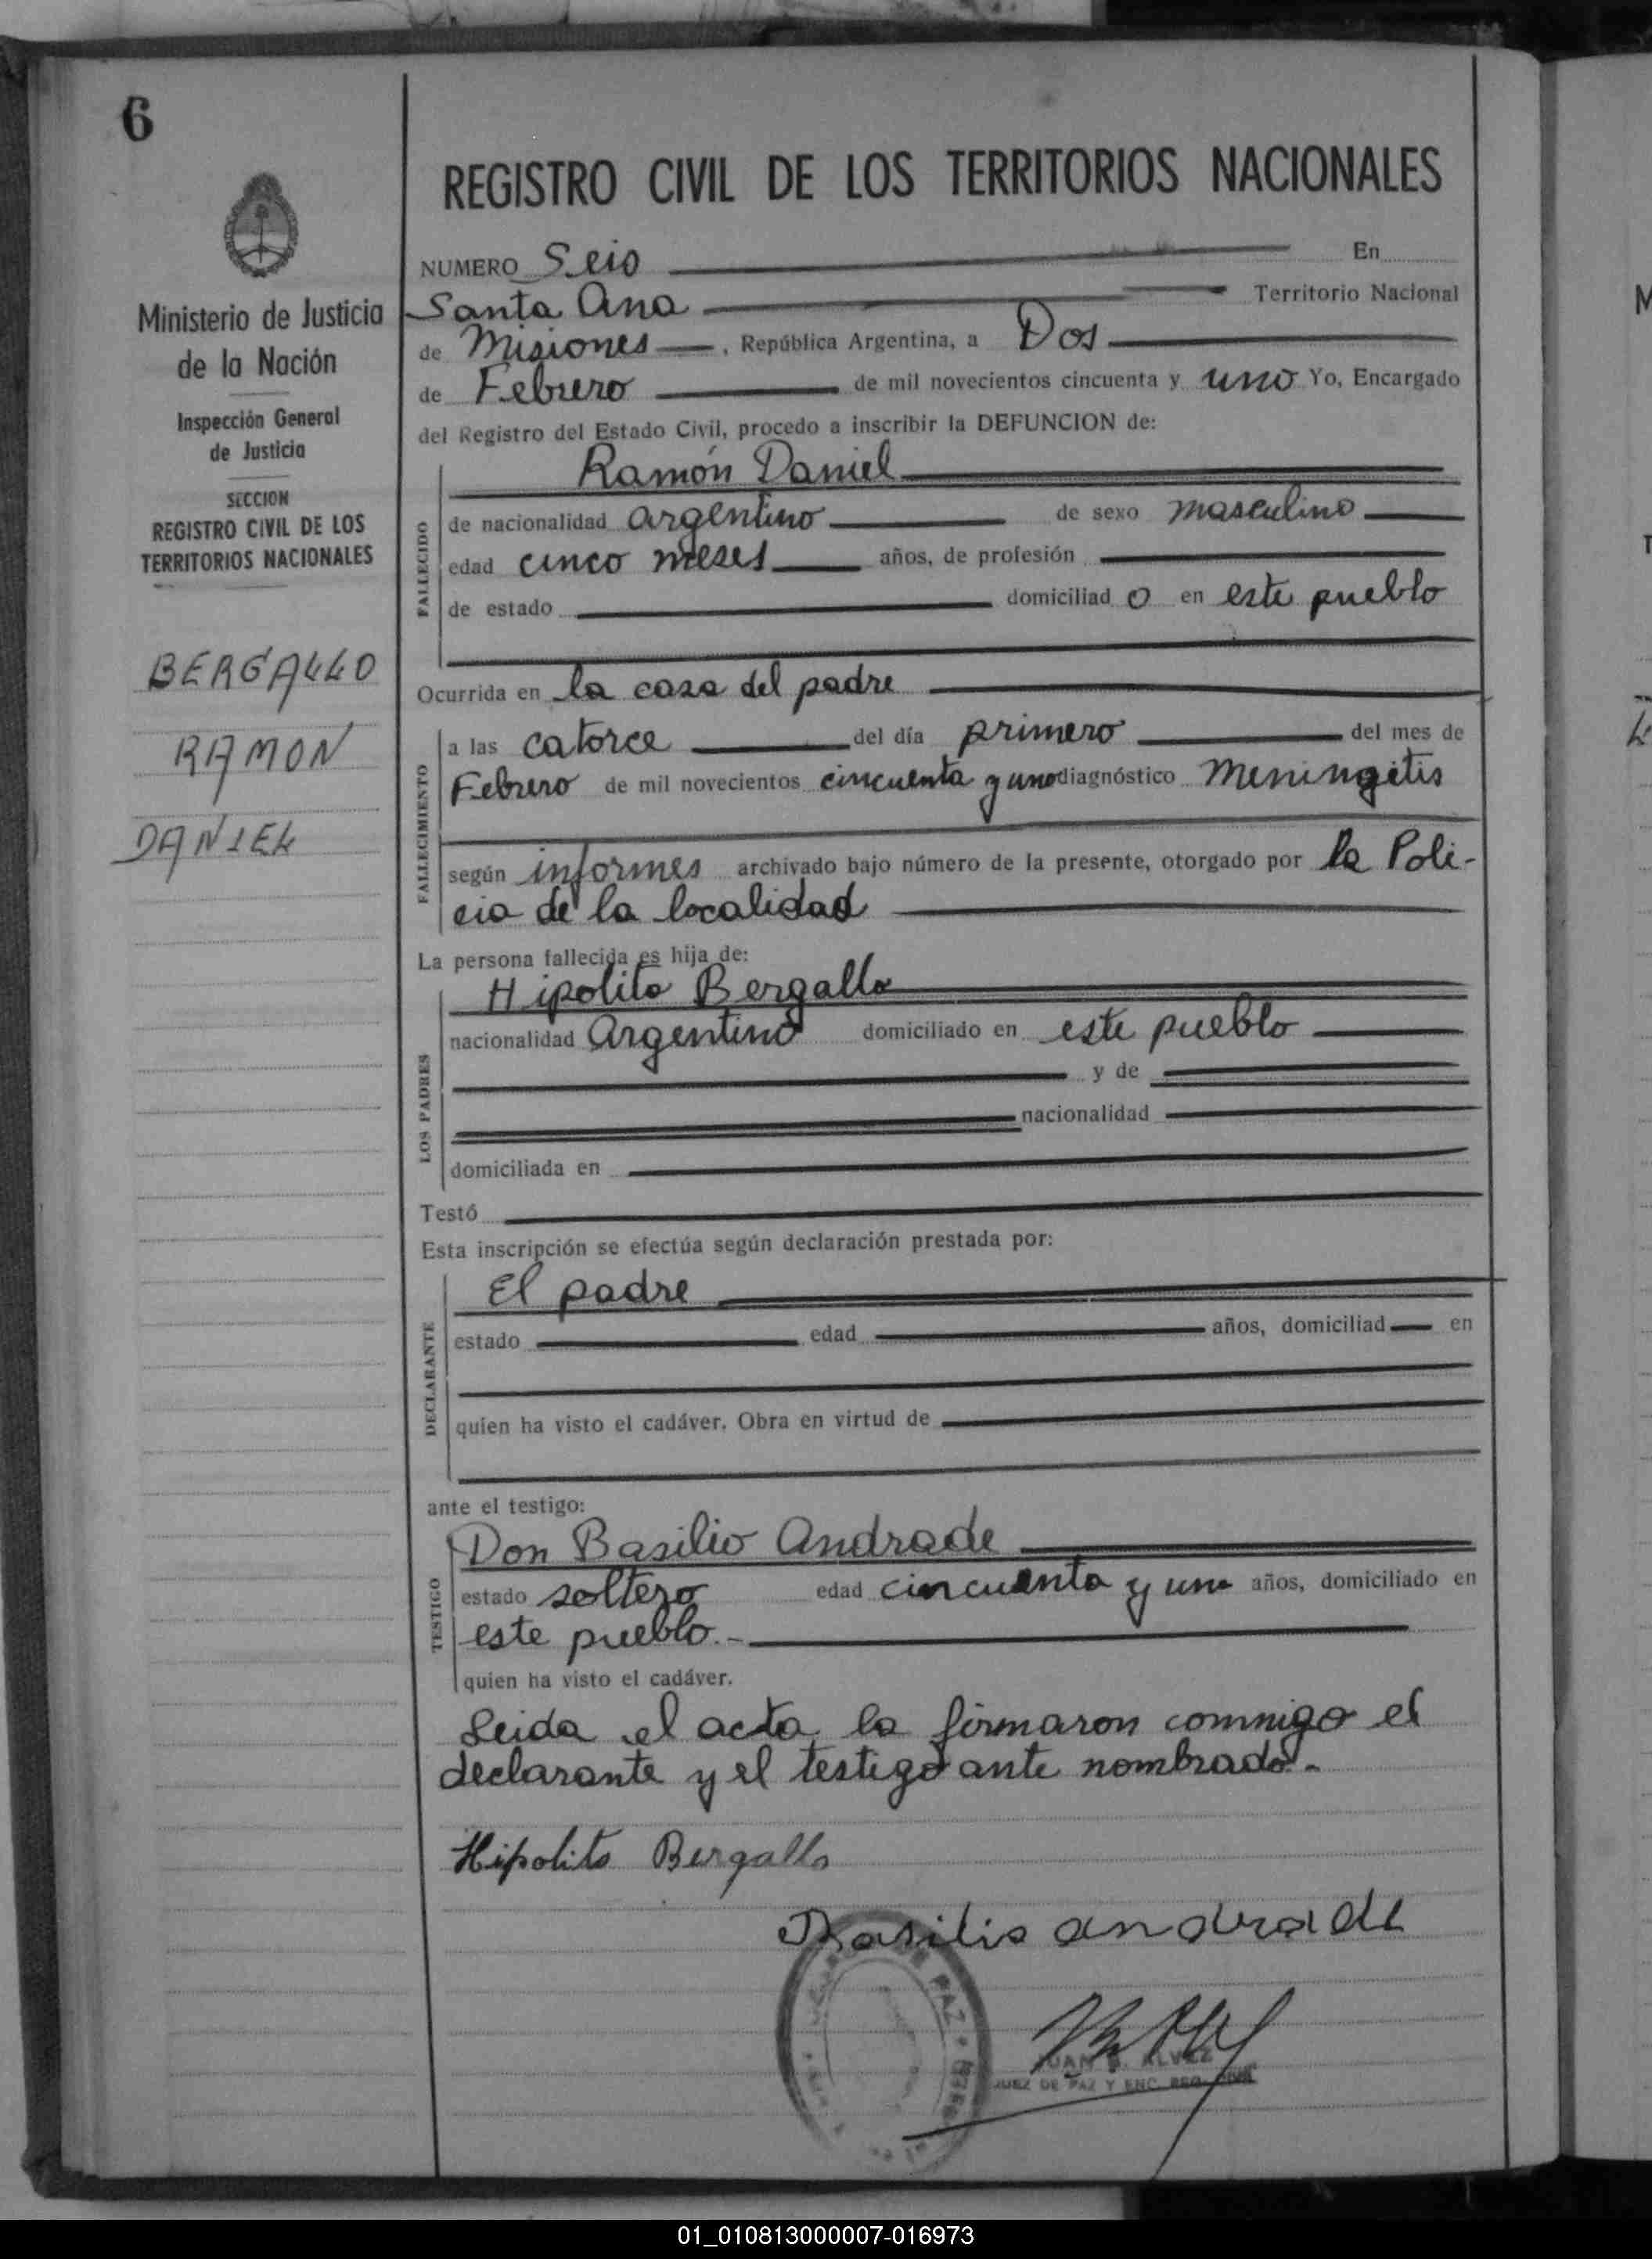 6
Ministerio de Justicia
de la Nación
Inspección General
de Justicia
SECCION
REGISTRO CIVIL DE LOS
TERRITORIOS NACIONALES
BERGALLO
RAMON
DANIEL
REGISTRO CIVIL DE LOS TERRITORIOS NACIONALES
NUMERO Seis En
Santa Ana Territorio Nacional
de Misiones, República Argentina, a Dos
de Febrero de mil novecientos cincuenta y uno Yo, Encargado
del Registro del Estado Civil, procedo a inscribir la DEFUNCION de:
FALLECIDO
Ramón Daniel
de nacionalidad argentino de sexo masculino
edad cinco meses años, de profesión
de estado domiciliad o en este pueblo
Ocurrida en la casa del padre
FALLECIMIENTO
a las catorce del día primero del mes de
Febrero de mil novecientos cincuenta y uno diagnóstico Meningitis
según informes archivado bajo número de la presente, otorgado por la Poli-
cia de la localidad
La persona fallecida es hija de:
LOS PADRES
Hipolito Bergallo
nacionalidad Argentino domiciliado en este pueblo
y de
nacionalidad
domiciliada en
Testó
Esta inscripción se efectúa según declaración prestada por:
DECLARANTE
El padre
estado edad años, domiciliad en
quien ha visto el cadáver. Obra en virtud de
ante el testigo:
TESTIGO
Don Basilio Andrade
estado soltero edad cincuenta y uno años, domiciliado en
este pueblo.-
quien ha visto el cadáver.
Leida el acta la firmaron conmigo el
declarante y el testigo ante nombrado.-
Hipolito Bergallo
Basilio andrade
DE PAZ
JUAN B. ALVEZ
JUEZ DE PAZ Y ENC. REG. CIVIL
01_010813000007-016973